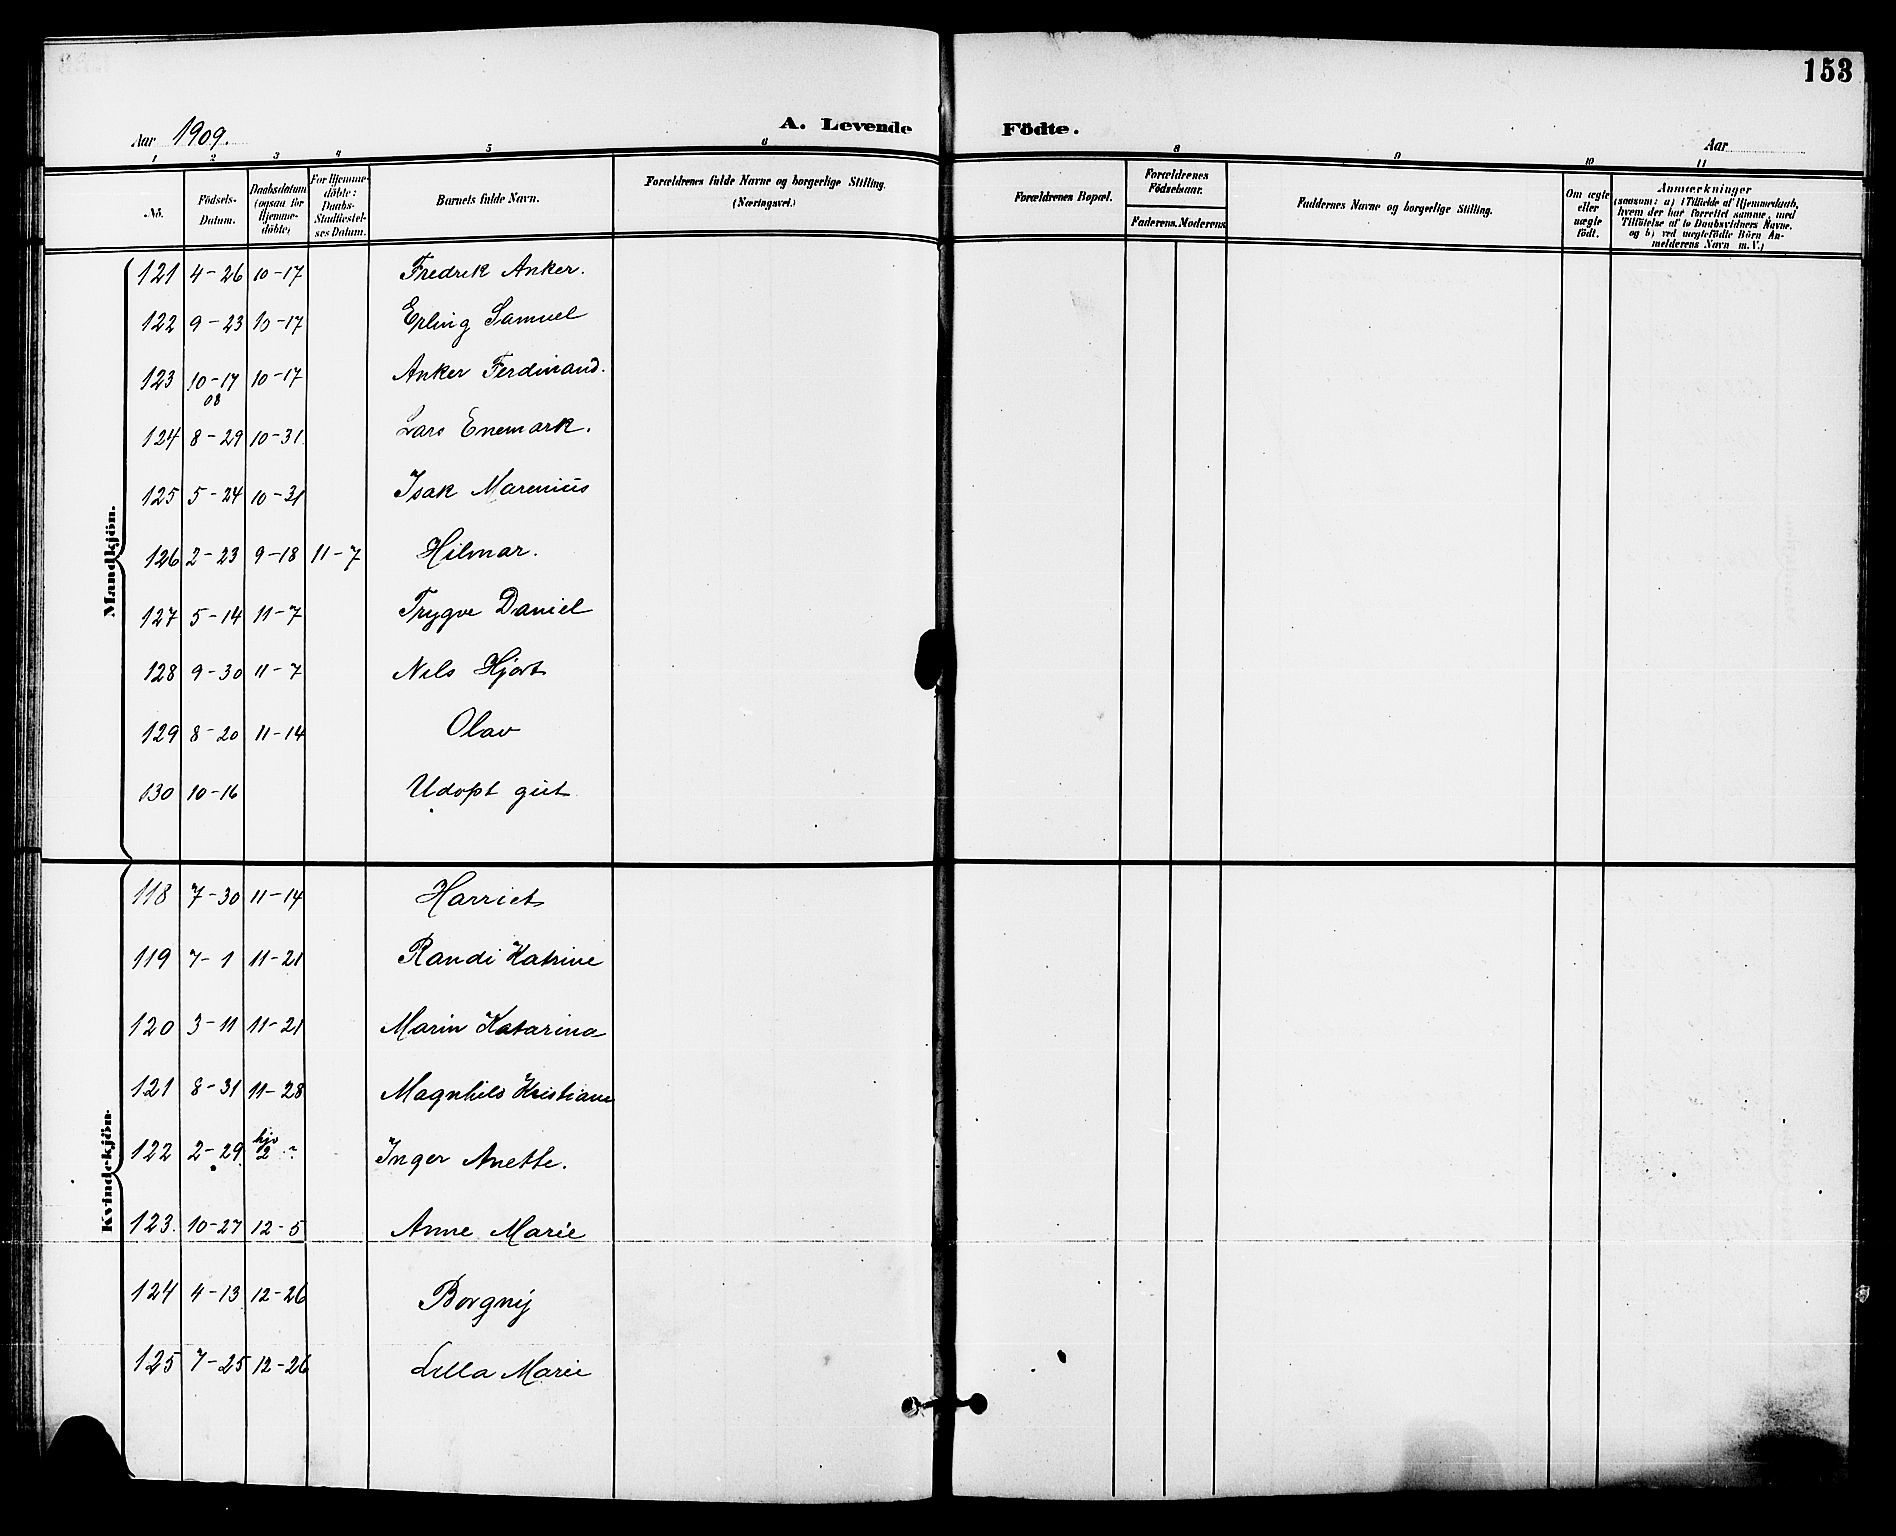 153
Aar 1909. A. Levende Födte. Aar
1 2 3 4 5 6 8 9 10 11
No. Födsels-Datum. Daabsdatum (ogsaa for Hjemme-döbte) For Hjemme-döbte: Daabs-Stadfæstel-ses Datum. Barnets fulde Navn. Forældrenes fulde Navne og borgerlige Stilling. (Næringsvei.) Forældrenes Bopæl. Forældrenes Födselsaar. Faderens. Moderens. Faddernes Navne og borgerlige Stilling. Om ægte eller uægte födt. Anmærkninger (saasom: a) i Tilfælde af Hjemmedaab, hvem der har forrettet samme, med Tilföielse af to Daabsvidners Navne, og b) ved uægtefödte Börn An-melderens Navn m. V.)
Mandkjön.
121 4-26 10-17 Fredrik Anker.
122 9-23 10-17 Erling Samuel
123 10-17 08 10-17 Anker Ferdinand.
124 8-29 10-31 Lars Enemark.
125 5-24 10-31 Isak Marenius
126 2-23 9-18 11-7 Hilmar.
127 5-14 11-7 Trygve Daniel
128 9-30 11-7 Nils Hjort
129 8-20 11-14 Olav
130 10-16 Udøpt gut
Kvindekjön.
118 7-30 11-14 Harriet
119 7-1 11-21 Randi Katrine
120 3-11 11-21 Marin Katarina
121 8-31 11-28 Magnhild Kristiane
122 2-29 2 - Inger Anette.
123. 10-27 12-5 Anne Marie
124 4-13 12-26 Borgny
125 7-25 12-26 Lilla Marie